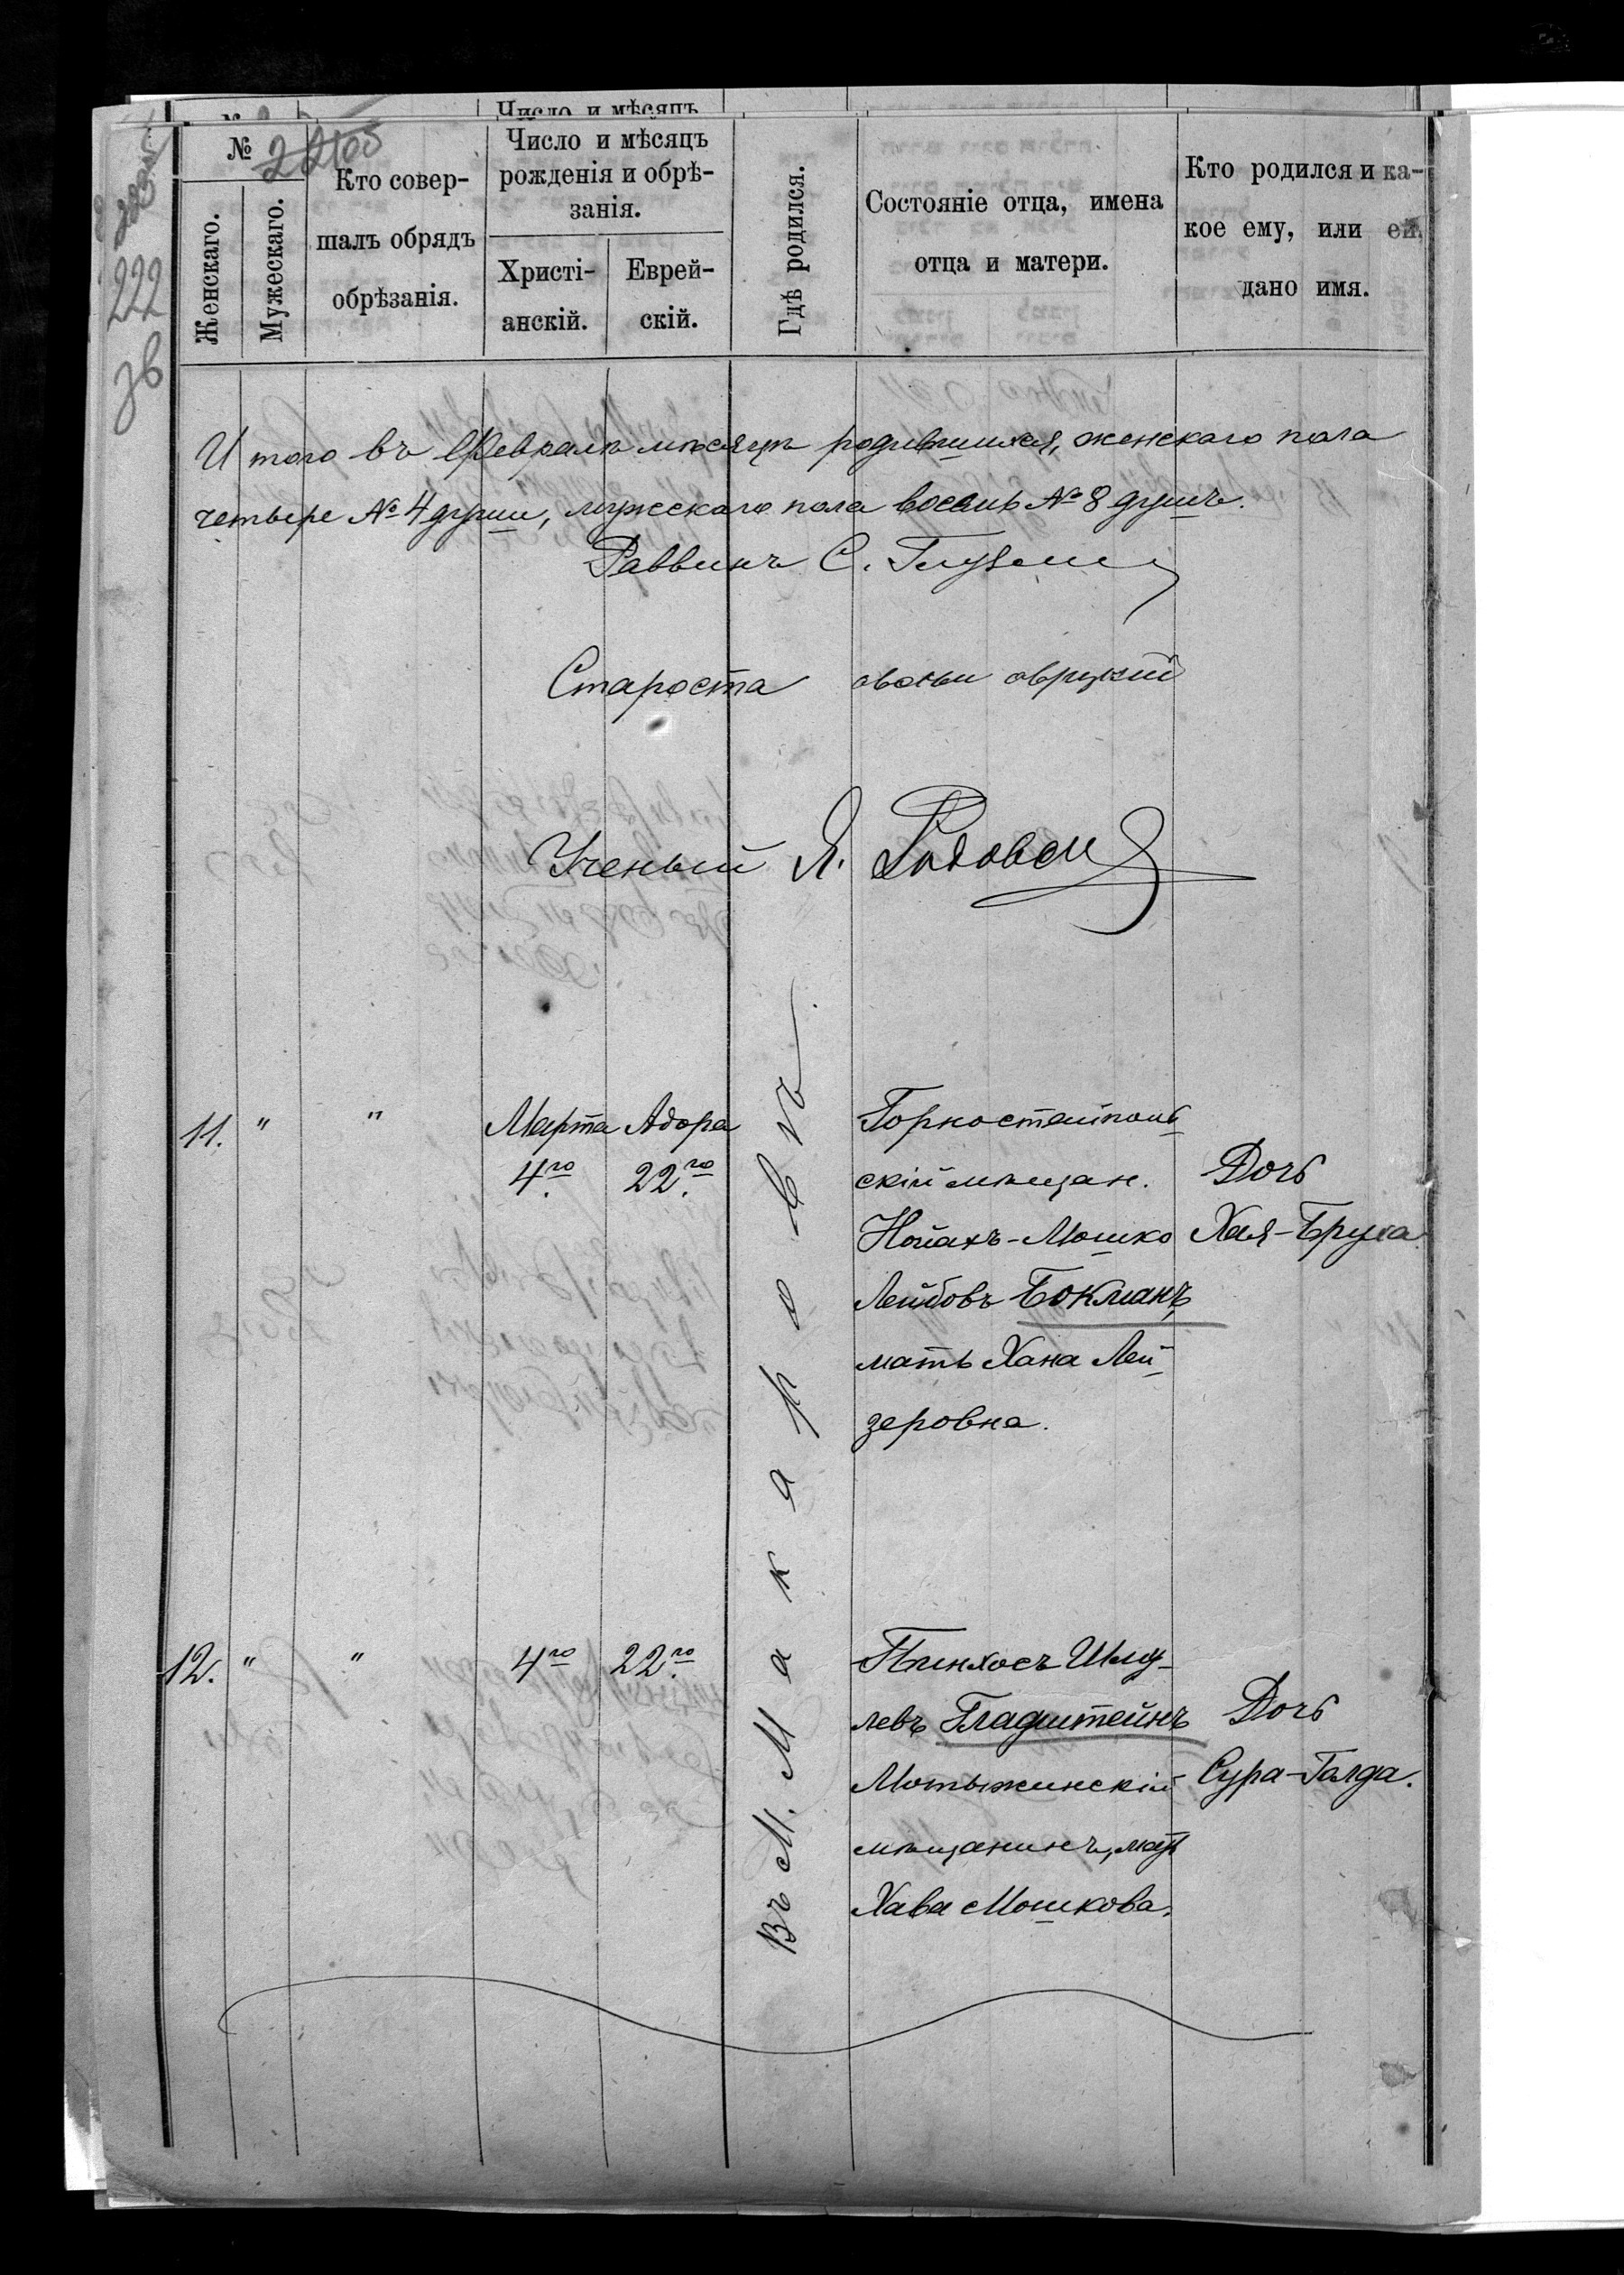 Число и мѣсяцъ
№
Женскаго.
Мужескаго.
Кто совер-
шалъ обрядъ
обрѣзанія.
Число и мѣсяцъ
рожденія и обрѣ-
занія.
Христі-
анскій.
Еврей-
скій.
Гдѣ родился.
Состояніе отца, имена
отца и матери.
Кто родился и ка-
кое ему, или ей,
дано имя.
222
зв
Итого въ Февралѣ мѣсяцѣ родившихся, женскаго пола
четьере № 4 души, мужескаго пола восемь № 8 душъ.
Раввинъ С.
Староста
Ученый Я.
11. " "
Марта Адора
4го. 22го.
Горностайполь
скій мѣщан.
Нойахъ-Мошко
Лейбовъ Бокманъ,
мать Хана Лей
зеровна.
Дочь
Хая-Бруха
12. " "
4го 22го.
Пинхосъ Шму-
левъ Гладштейнъ
Мотыжинскій
мѣщанинъ, мать
Хава Мошкова.
Дочь
Сура-Голда.
Въ М. Макаровѣ.